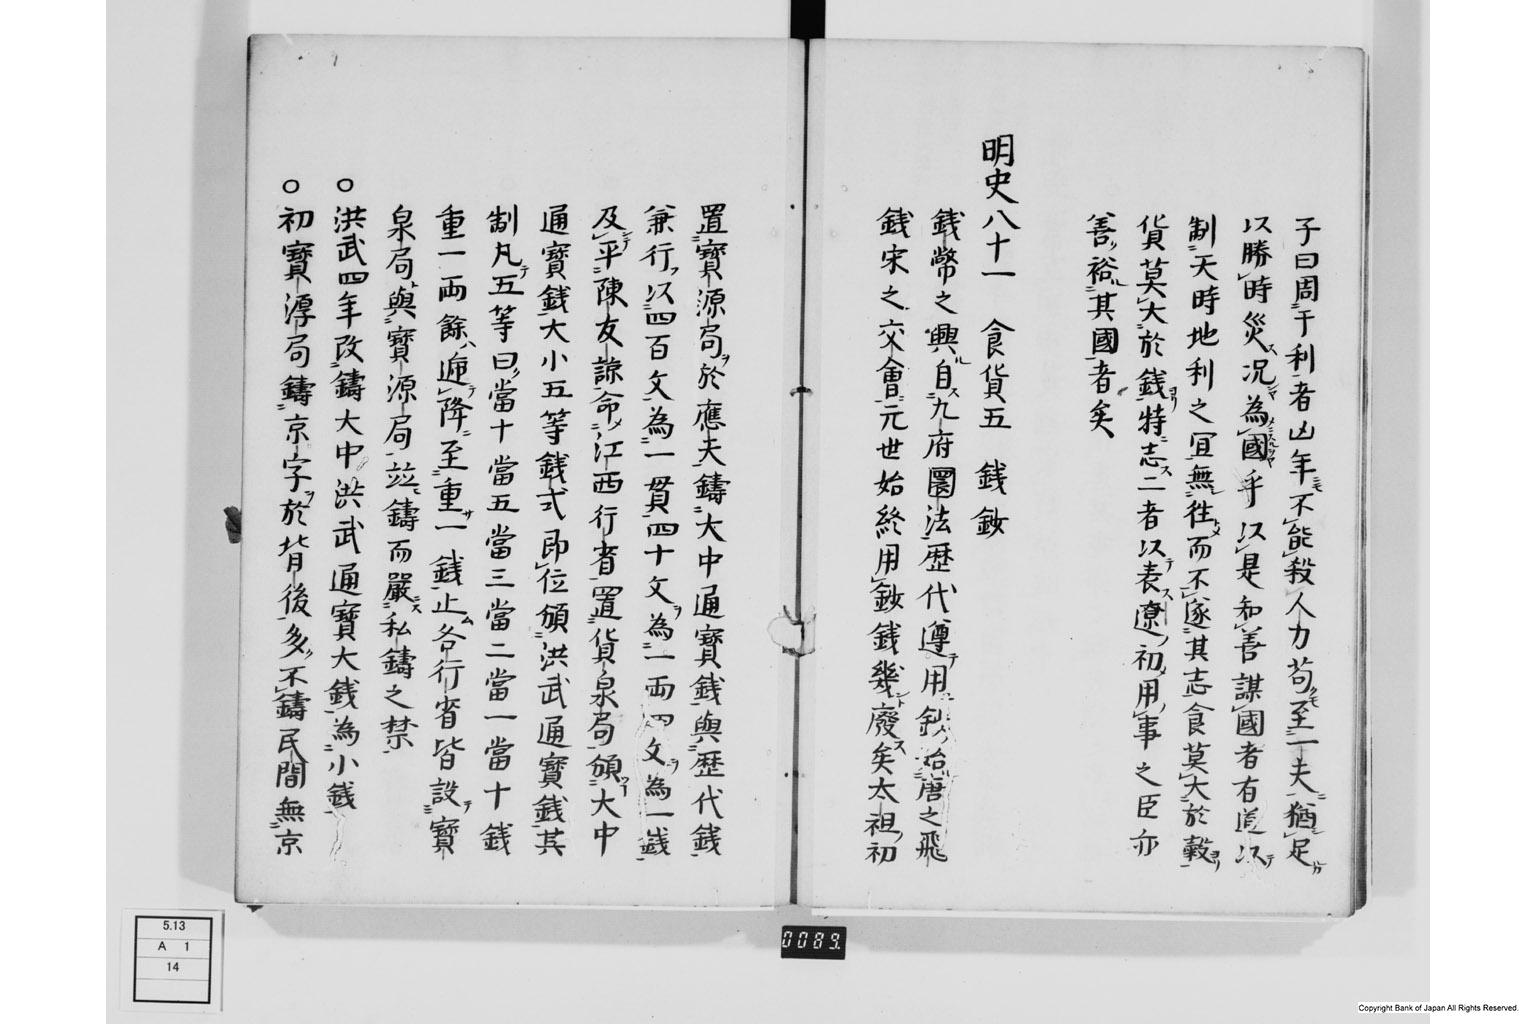 子曰周于利者凶年不能殺人力苟至一夫猶足
以勝時災況為國乎以是和善謀國者有道以
制天時地利之宜無徃而不遂其志食莫大於穀
貨莫大於錢特志二者以表遼初用事之臣亦
善裕其國者矣
明史八十一 食貨五 錢鈔
錢幣之興自九府圜法歷代遵用鈔始唐之飛
錢宋之交會元世始終用鈔錢幾廢矣太祖初
置寶源局於應天鑄大中通寶錢與歷代錢
兼行以四百文為一貫四十文為一兩四文為一錢
及平陳友諒命江西行省置貨泉局頒大中
通寶錢大小五等錢式即位頒洪武通寶錢其
制凡五等曰當十當五當三當二當一當十錢
重一兩餘遞降至重一錢止各行省皆設寶
泉局與寶源局並鑄而嚴私鑄之禁
○洪武四年改鑄大中洪武通寶大錢為小錢
○初寶源局鑄京字於背後多不鑄民間無京
5.13
A 1
14
0089.
Copyright Bank of Japan All Rights Reserved.